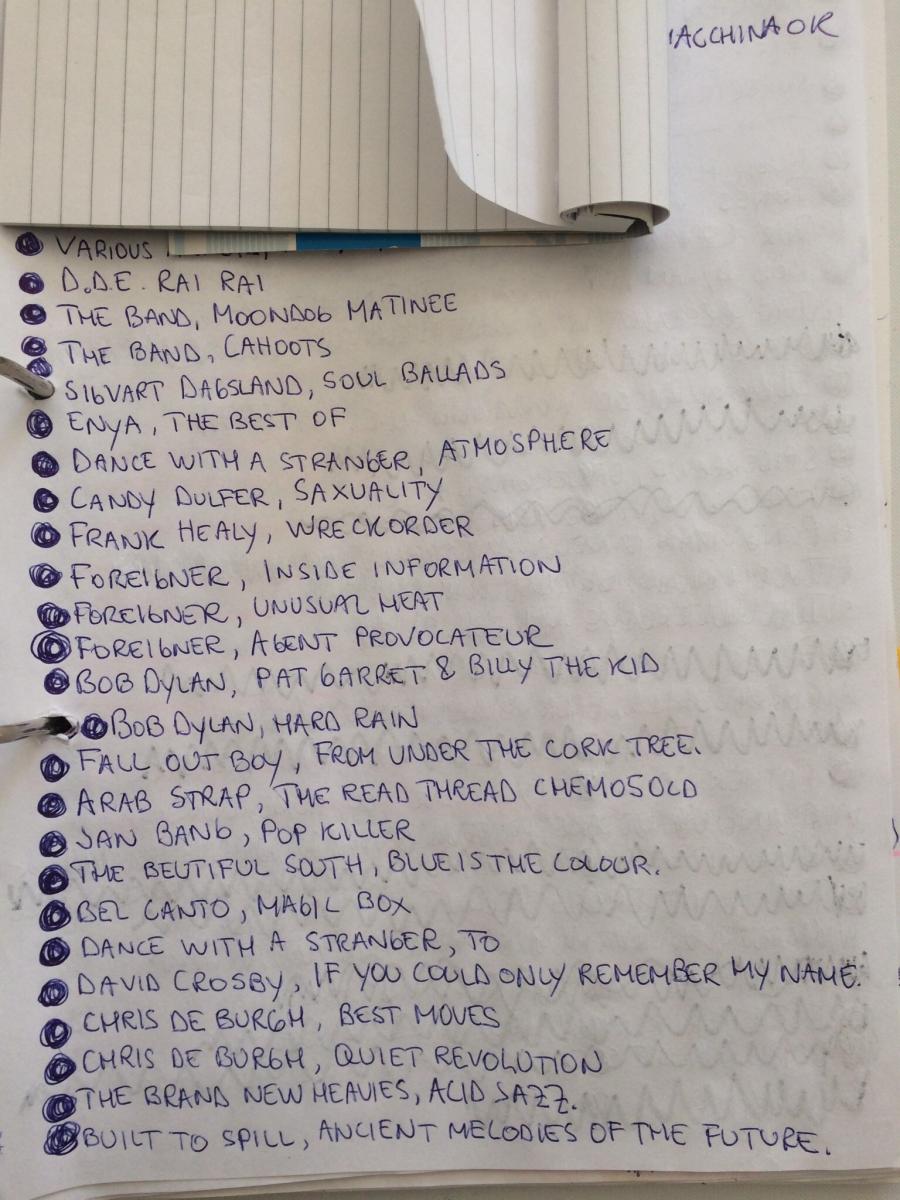 VARIOUS
D.D.E. RAI RAI
THE BAND, MOONDOG MATINEE
THE BAND, CAHOOTS
SIGVART DAGSLAND, SOUL BALLADS
ENYA, THE BEST OF
DANCE WITH A STRANGER, ATMOSPHERE
CANDY DULFER, SAXUALITY
FRANK HEALY, WRECKORDER
FOREIGNER, INSIDE INFORMATION
FOREIGNER, UNUSUAL HEAT
FOREIGNER, AGENT PROVOCATEUR
BOB DYLAN, PAT GARRET & BILLY THE KID
BOB DYLAN, HARD RAIN
FALL OUT BOY, FROM UNDER THE CORK TREE.
ARAB STRAP, THE READ THREAD CHEM050LD
JAN BANG, POP KILLER
THE BEUTIFUL SOUTH, BLUE IS THE COLOUR.
BEL CANTO, MAGIC BOX
DANCE WITH A STRANGER, TO
DAVID CROSBY, IF YOU COULD ONLY REMEMBER MY NAME.
CHRIS DE BURGH, BEST MOVES
CHRIS DE BURGH, QUIET REVOLUTION
THE BRAND NEW HEAVIES, ACID JAZZ.
BUILT TO SPILL, ANCIENT MELODIES OF THE FUTURE.